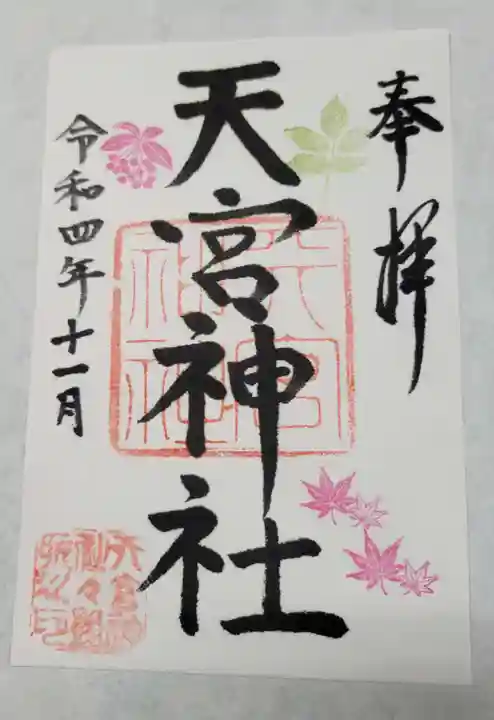 奉拝
天宮神社
令和四年十一月
天宮神社